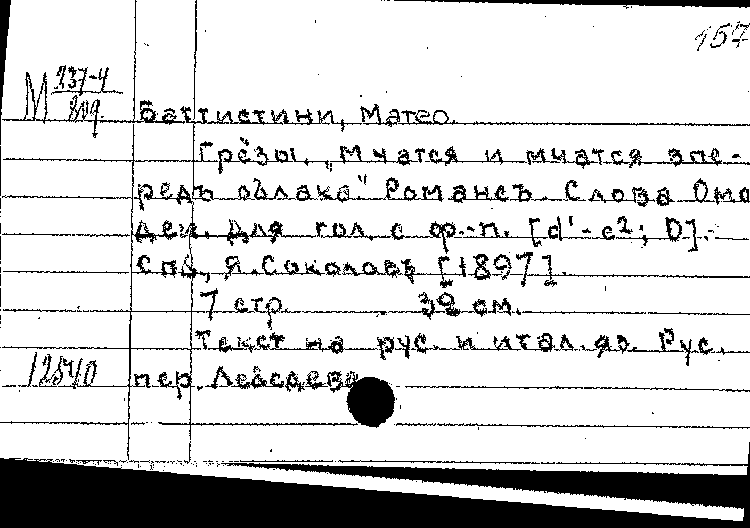 157
М 237-4
809
Баттистини, Матео.
Грёзы. „Мчатся и мчатся впе-
редъ облака". Романсъ. Слова Ома
деи. Для гол. с ф.-п. [d¹-e²; D].-
Спб., Я. Соколовъ [1897].
7 стр. 32 см.
Текст на рус. и итал. яз. Рус.
12540
пер. Лебедева